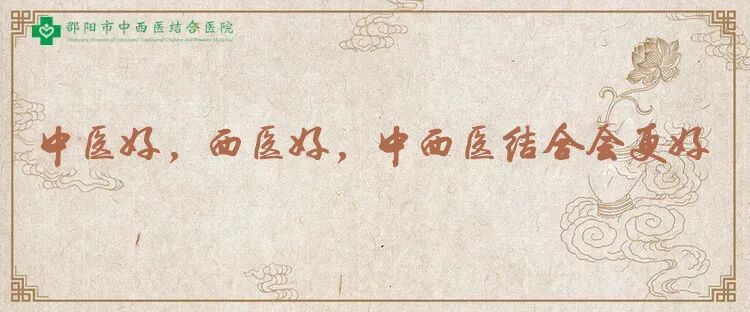 邵阳市中西医结合医院
Shaoyang Hospital of Integrated Traditional Chinese and Western Medicine
中医好，西医好，中西医结合会更好